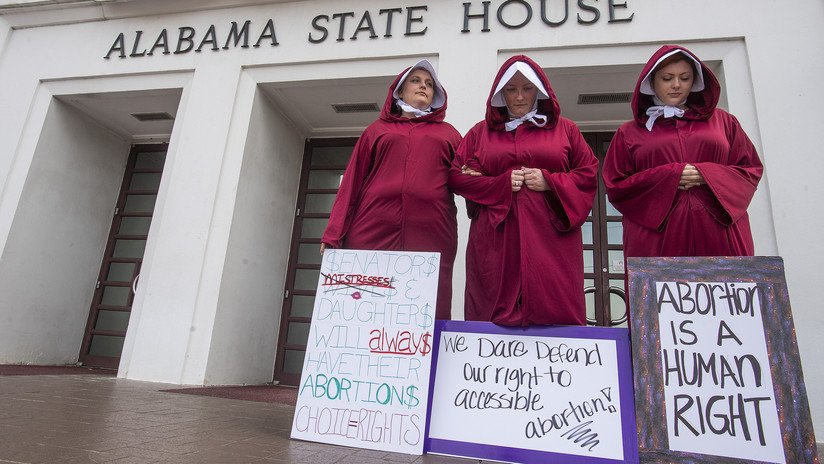 ALABAMA STATE HOUSE
$ENATOR$
MISTRESSES!
WIVE$ &
DAUGHTER$
WILL alway$
HAVE THEIR
ABORTION$
CHOICE=RIGHTS
We Dare Defend
our right to
accessible
abortion!
ABORTION
IS A
HUMAN
RIGHT